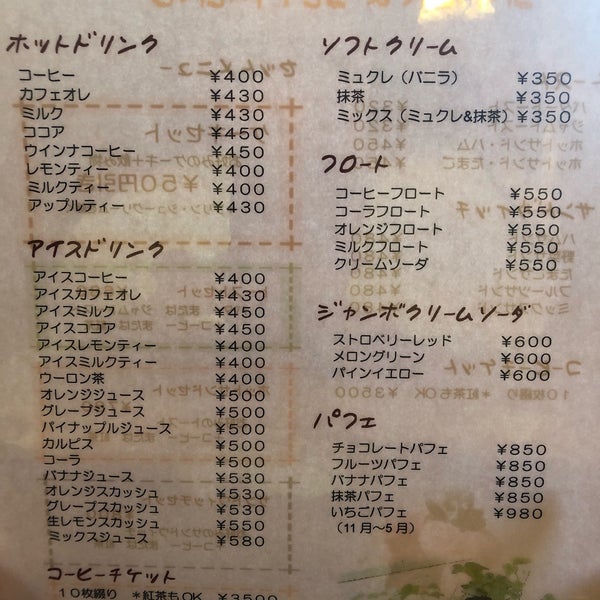 ホットドリンク
コーヒー ¥400
カフェオレ ¥430
ミルク ¥430
ココア ¥450
ウインナコーヒー ¥450
レモンティー ¥400
ミルクティー ¥400
アップルティー ¥430
アイスドリンク
アイスコーヒー ¥400
アイスカフェオレ ¥430
アイスミルク ¥450
アイスココア ¥450
アイスレモンティー ¥400
アイスミルクティー ¥400
ウーロン茶 ¥400
オレンジジュース ¥500
グレープジュース ¥500
パイナップルジュース ¥500
カルピス ¥500
コーラ ¥500
バナナジュース ¥530
オレンジスカッシュ ¥530
グレープスカッシュ ¥530
生レモンスカッシュ ¥550
ミックスジュース ¥580
コーヒーチケット
10枚綴り *紅茶もOK ¥3500
ソフトクリーム
ミュクレ（バニラ） ¥350
抹茶 ¥350
ミックス（ミュクレ&抹茶）¥350
フロート
コーヒーフロート ¥550
コーラフロート ¥550
オレンジフロート ¥550
ミルクフロート ¥550
クリームソーダ ¥550
ジャンボクリームソーダ
ストロベリーレッド ¥600
メロングリーン ¥600
パインイエロー ¥600
パフェ
チョコレートパフェ ¥850
フルーツパフェ ¥850
バナナパフェ ¥850
抹茶パフェ ¥850
いちごパフェ ¥980
（11月～5月）